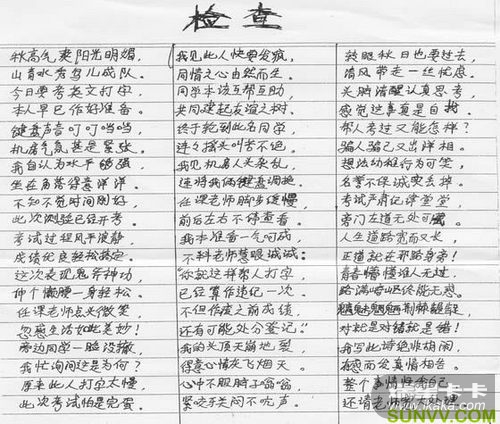 检查
秋高气爽阳光明媚,
山青水秀鸟儿成队。
今日要考英文打字,
本人早已作好准备。
键盘声音叮叮当当,
机房气氛甚是紧张。
我自认为水平够强
坐在角落得意洋洋。
不知不觉时间刚好
此次测验已经开考。
考试过程风平浪静
成绩优良轻松搞定。
这次表现鬼斧神功,
伸个懒腰一身轻松。
任课老师点头微笑
忽感生活如此美妙!
旁边同学一脸没辙,
我忙询问这是为何?
原来此人打字太慢
此次考试怕是完蛋。
我见此人快要发疯,
同情之心由然而生。
同学本该互帮互助,
共同建起友谊之树。
终于轮到此名同学
连连摇头叫苦不绝
我见机房人头杂乱,
连将我俩键盘调换。
任课老师脚步缓慢,
前后左右不停查看
我本准备一气呵成
不料老师慧眼诚诚
"你就这样帮人打字
已经算作违纪一次
不但作废之前成绩,
还有可能处分登记."
我的头顶天崩地裂
得意心情灰飞烟灭。
心中不服脖子
紧咬牙关闷不吭声
转眼秋日也要过去,
清风带走一丝忧虑。
头脑清醒认真思考
感觉这事真是白
帮人考过又能怎样?
骗人骗己又出洋相。
想法幼稚行为可笑,
名誉不保诚实丢掉。
考试严肃纪律堂堂
旁门左道无处可
人生道路宽而又长,
正道就在那路旁
懵懂谁人无过,
路满崎岖终能无惑。
对就是对错就是错!
我写此诗绝非胡闹,
有感而发真情相告。
整个事情归咎自己
还请老师
卡卡
www.kaka.com
SUNVV.COM